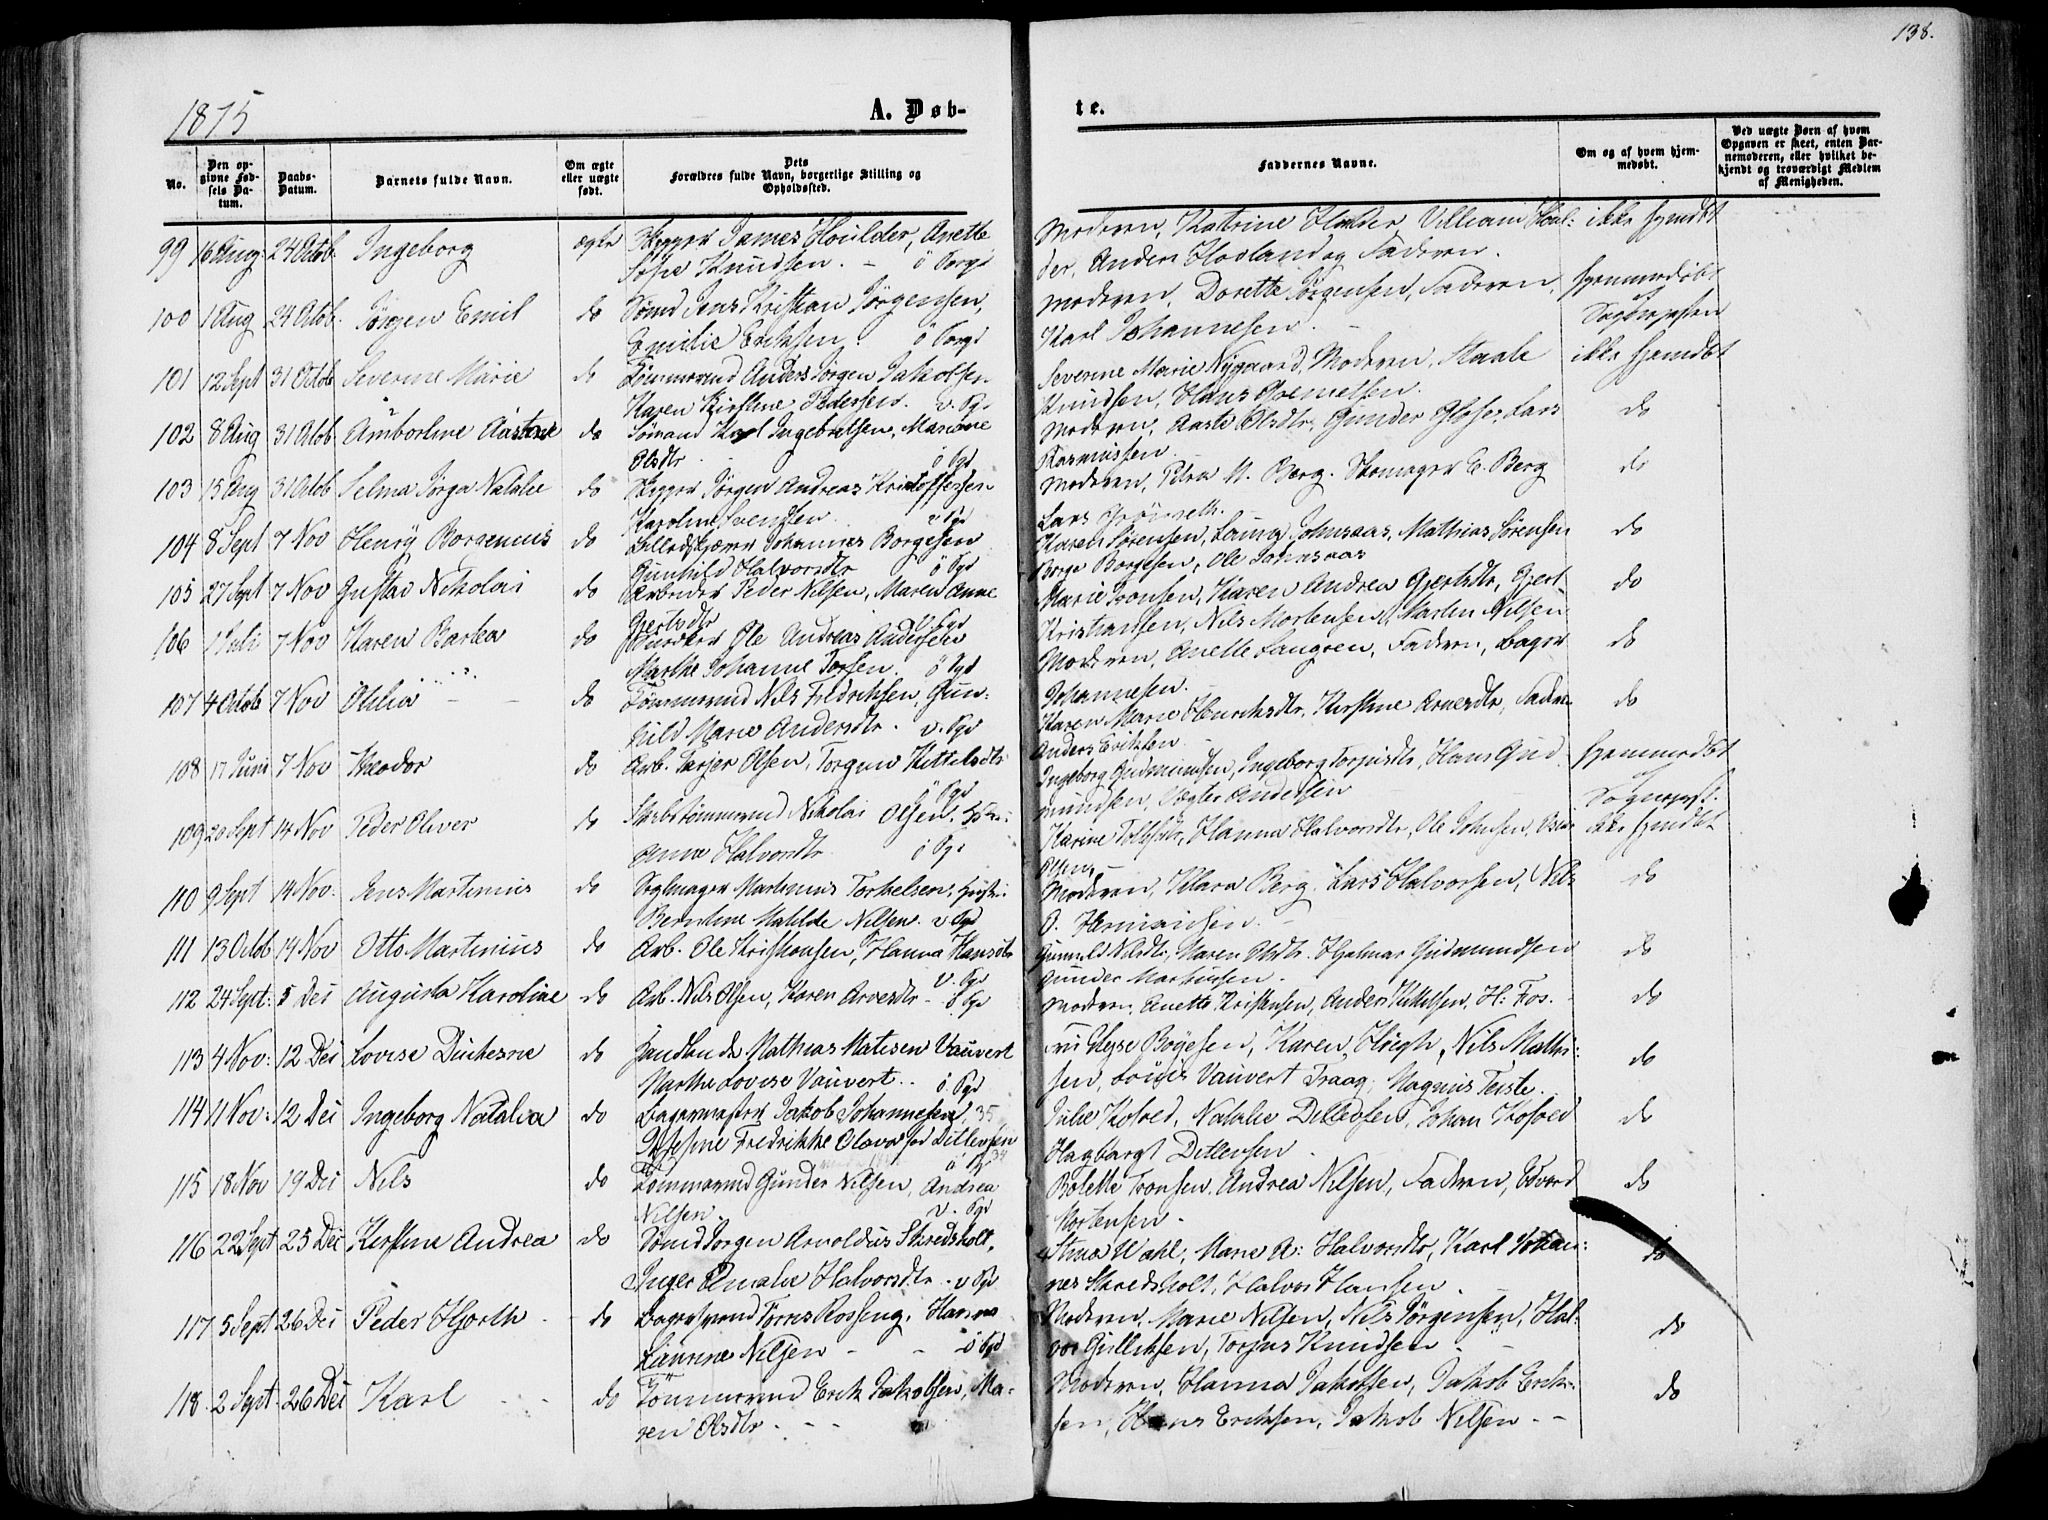 138.
1875
A. Døb-
te.
No.
Den opgivne Fødsels Datum.
Daabs-Datum.
Barnets fulde Navn.
Om ægte eller uægte født.
Dets Forældres fulde Navn, borgerlige Stilling og Opholdssted.
Faddernes Navne.
Om og af hvem hjemmedøbt.
Ved uægte Børn af hvem Opgaven er skeet, enten Barnemoderen, eller hvilket bekjendt og troværdigt Medlem af Menigheden.
99 16 Aug 24 Octob. Ingeborg ægte Skipper James Houlder, Anette
Sofie Knudsen. - ö Porgr
Moderen, Katrine Holder, Villiam Houl: ikke hjemdbt
der, Anders Hovland og Faderen.
100 1 Aug 24 Octob. Jörgen Emil do Sömd Jens Kristian Jörgensen,
Emilie Eriksen.
Moderen, Dorette Jörgensen, Faderen, hjemmedöbt
Karl Johannesen. -
101 12 Sept 31 Octob Severine Marie do Tömmermd Anders Jörgen Jakobsen
Karen Kirstine Pedersen. v. Pgr
Severine Marie Nygaard, Moderen, Staale ikke hjemdbt
Knudsen, Hans
102 8 Aug 31 Octob do Sömand Karl Ingebretsen,
Olsdtr
Moderen, Aaste Olsdtr, Gunder Lars do
Rasmussen.
103 15 Aug 31 Octob Selma Jörga Natalie do Skipper Jörgen Andreas Kristoffersen
Karoline Svendsen
Moderen, Petra M. Berg. Skomager E. Berg do
Lars
104 8 Sept 7 Nov Henry Borgenius do Johannes Borgesen
Gunhild Halvorsdtr ö Pgd
Karen Sörensen, Mathias Sörensen do
Börge Borgesen, Ole
105 27 Sept 7 Nov Gustav Nikolai do Arbeider Peder Nilsen, Maren Anne
Gjertsdtr v. Pgd
Marie Tronsen, Karen Andrea Gjertsdtr, Gjert do
Kristiansen, Nils Mortensen, Martin Nilsen
106 1 Juli 7 Nov Karen Bartea do Ole Andreas Andersen
Marthe Johanne ö Pgd
Moderen, Anette Langren, Faderen, Bager do
Johannesen.
107 4 Octob 7 Nov Otilia - - do Tömmermd Nils Fredriksen, Gun:
hild Marie Andersdtr. v. Pgd
Karen Marie Henriksdtr, Kirstine Arnesdtr, Faderen do
Anders Eriksen
108 17 Juni 7 Nov Theodor do Arb. Tarjer Olsen, Torgun Kittelsdtr
ö Pgd
Ingeborg Gudmundsen, Ingeborg Torjusdtr, Hans Gud hjemmedbt
mundsen, Andersen
109 20 Sept 14 Nov Peder Oliver do Skibstömmermd Nikolai Olsen,
Anna Halvorsdtr ö Pgr
Karine Tollefsdtr, Hanna Halvorsdtr, Ole Johnsen, ikke hjemdbt
Olsen,
110 9 Sept 14 Nov. Jens Martinius do Seglmager Martinius Torkelsen,
Berntine Matilde Nilsen. v Pgd
Moderen, Klara Berg, Lars Halvorsen, Nils do
O. Hermansen. -
111 13 Octob 14 Nov Otto Martinius do Arb. Ole Kristiansen, Hanna Hansdtr
v. Pgd
Gunnild Nilsdtr, Maren Olsdtr. Hjalmar Gudmundsen do
Gunder Martinsen.
112 24 Sept: 5 Dec Augusta Karoline do Arb. Nils Olsen, Karen Arnesdtr - ö Pgr
Moderen, Anette Kristensen, Anders Kittelsen, H: Fos. do
113 4 Nov: 12 Dec Lovise Duchesne do Mathias Matisen Vauvert
Marthe Lovise Vauvert.. ö. Pgd
Böyesen, Karen Höegh, Nils Mathi: do
sen, Louis Vauvert Traag, Magnus Teiste.
114 11 Nov: 12 Dec Ingeborg Natalia do Bagermester Jakob Johannesen, 35
Fredrikke Olava fød Ditlevsen
Julie Kofoed, Natalie Ditlevsen, Johan Kofoed do
Hagbart Ditlevsen
115 18 Nov 19 Dec Nils do Tömmermd Gunder Nilsen, Andrea
Nilsen. v. Pgd
Bolette Tronsen, Andrea Nilsen, Faderen, Edvard do
Mortensen -
116 22 Sept 25 Dec Kirstine Andrea do Sömd Jörgen Arnoldus Skredsholt,
Inger Amalie Halvorsdtr. v Pgd
Wahl, Marie A: Halvorsdtr, Karl Johan: do
nes Skredsholt, Halvor Hansen
117 5 Sept 26 Dec Peder Hjorth - do Törres Rosseng, Hanna
Laurine Nilsen - - ö Pgd
Moderen, Marie Nilsen, Nils Jörgensen, Hal: do
vor Gulliksen, Torjus Knudsen -
118 2 Sept 26 Dec Karl - - do Tömmermd Erik Jakobsen, Ma:
ren Olsdtr. - - -
Moderen, Hanna Jakobsen, Jakob Erik: do
sen, Hans Eriksen, Jakob Nilsen - -